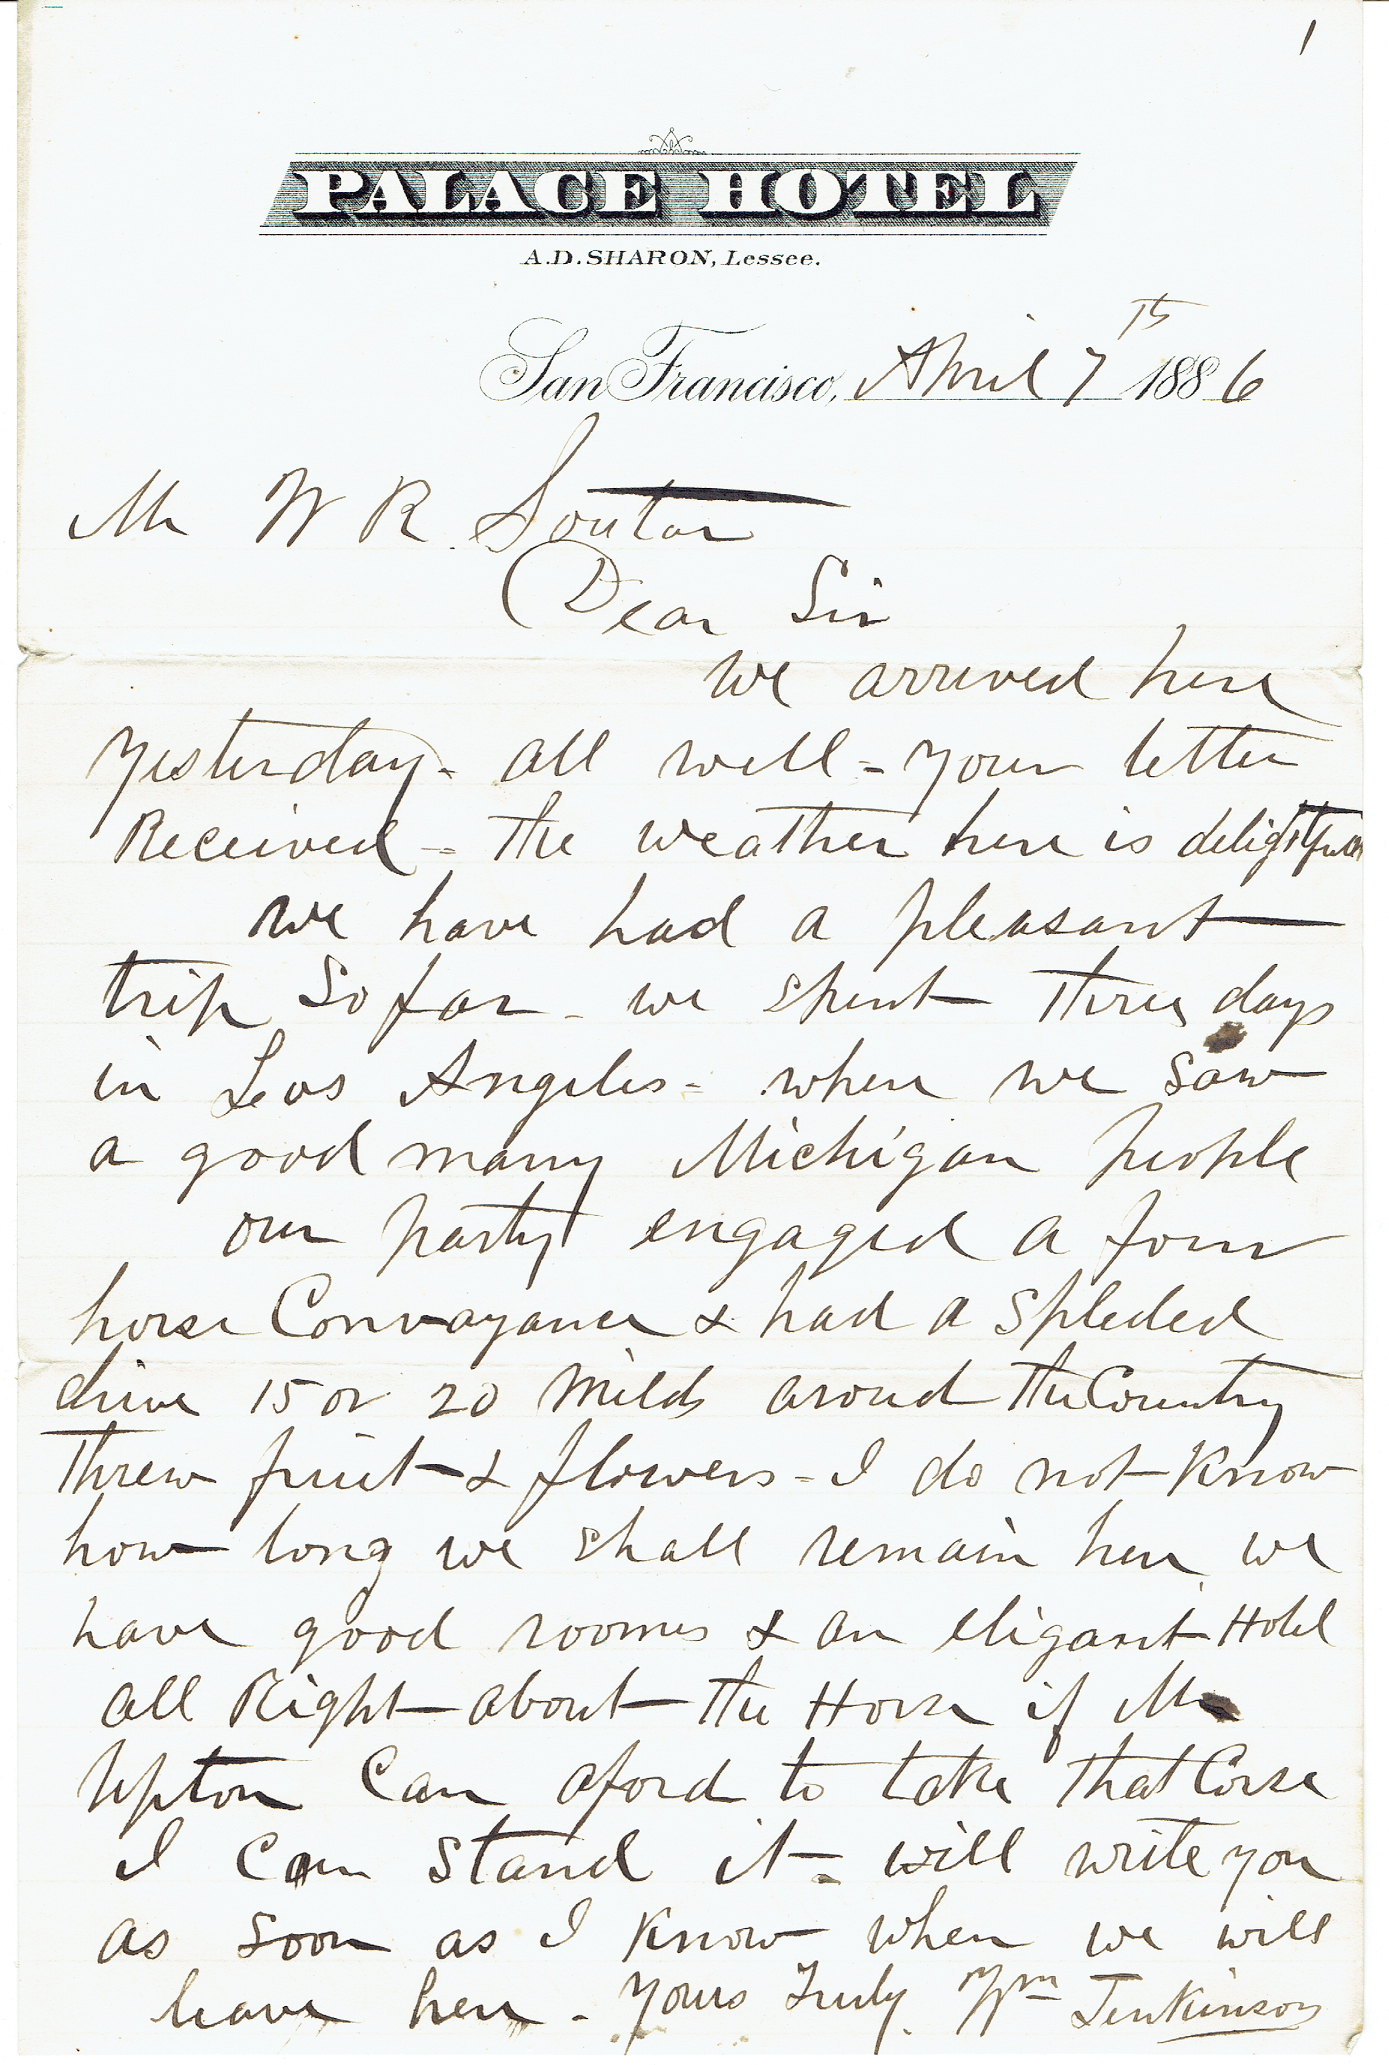 1
PALACE HOTEL
A.D. SHARON, Lessee.
San Francisco, April 7th 1886
Mr W R. Soutar
Dear Sir
we arrived here
Yesterday - all well = your letter
Received = the weather here is delightfull
we have had a pleasant
trip So far - we spent three days
in Los Angeles = when we Saw
a good many Michigan people
our party engaged a four
horse Convayance & had a Spleded
drive 15 or 20 Milds aroud the Country
threw fruit & flowers = I do not Know
how long we shall remain here we
have good rooms & an eligant Hotel
all Right about the Horse if Mr
Upton Can aford to take that Corse
I Can Stand it = will write you
as Soon as I Know when we will
leave here - Yours Truly Wm Jenkinson